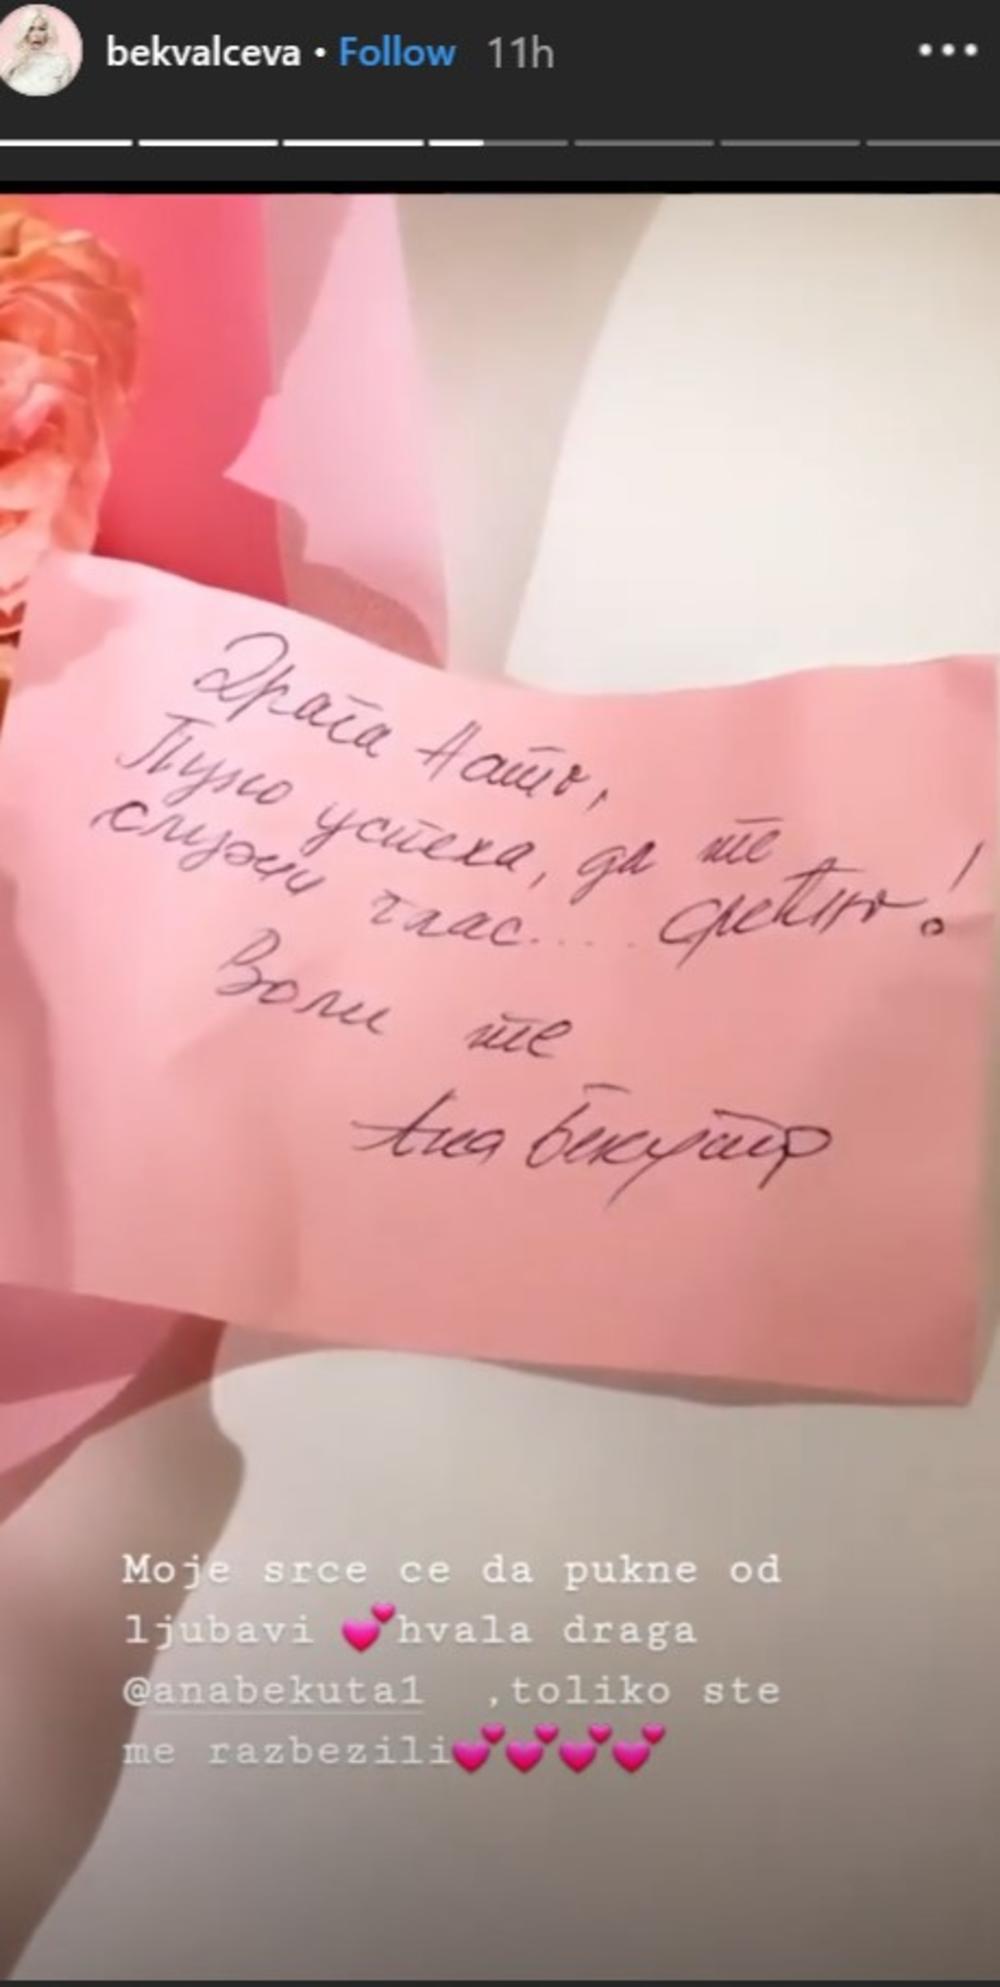 bekvalceva • Follow 11h
Драга Нато,
Пуно успеха, да те
служи глас.... сретно!
Воли те
Ана Бекута
Moje srce ce da pukne od
ljubavi 💕hvala draga
@anabekuta1 ,toliko ste
me razbezili💕💕💕💕